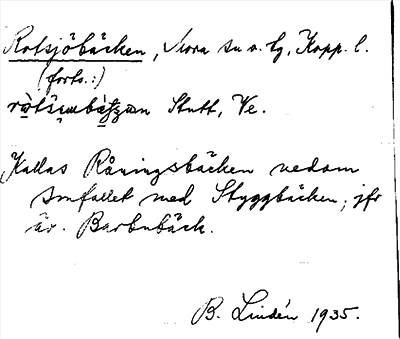 Rotsjöbäcken, Stora sn o. lg, Kopp. l.
(forts.:)
Stutt, Ve.
Kallas Råningsbäcken nedom
smfallet med Styggbäcken; jfr
är. Barbubäck.
B. Lindén 1935.